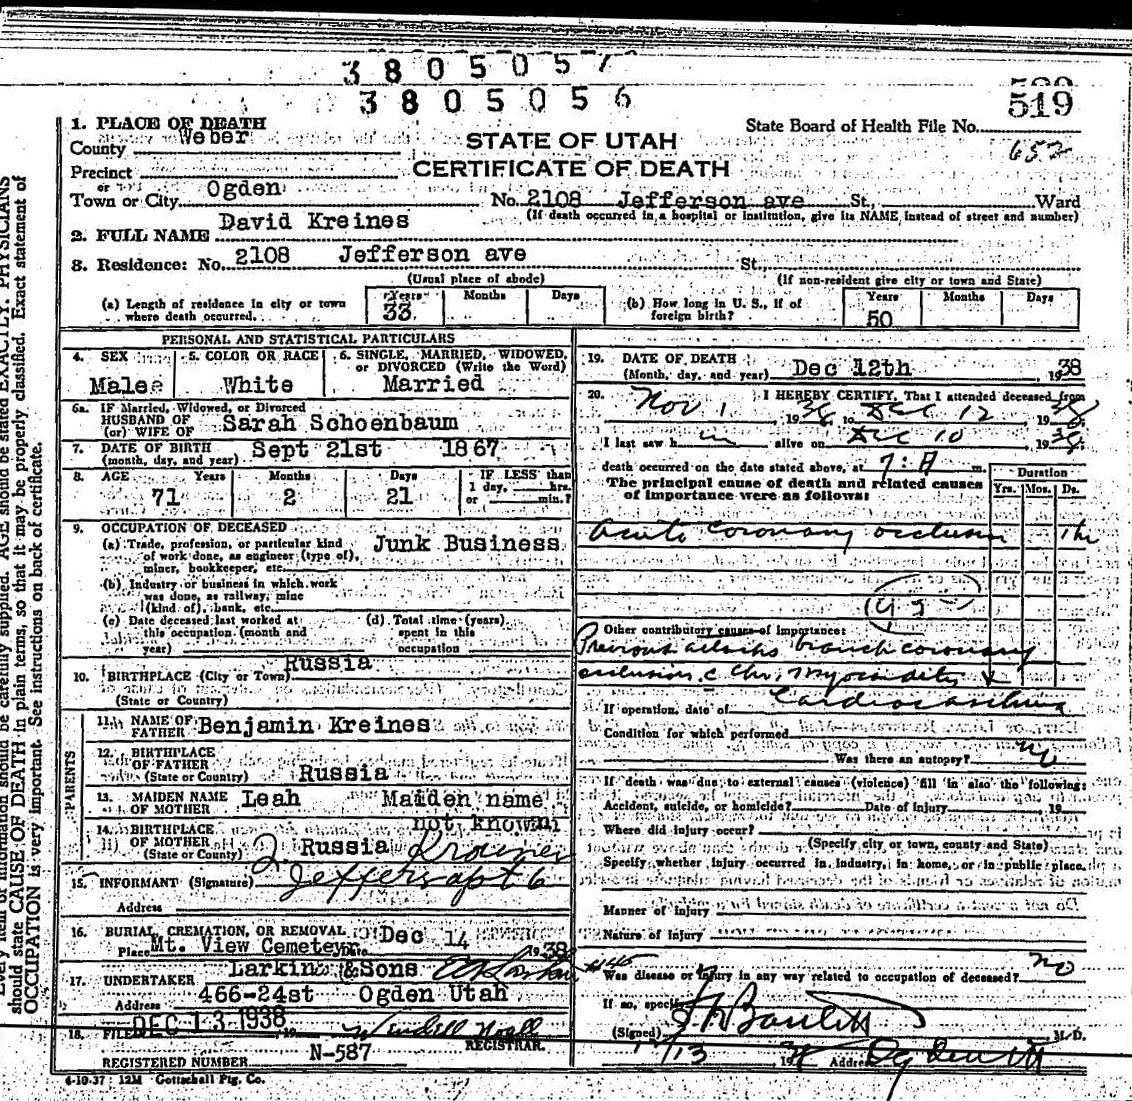 3805057
3805056
519
1. PLACE OF DEATH
Weber
County
STATE OF UTAH
CERTIFICATE OF DEATH
State Board of Health File No.
652
Precinct
or
Town or City Ogden No. 2108 Jefferson ave St., Ward
(If death occurred in a hospital or institution, give its NAME instead of street and number)
2. FULL NAME David Kreines
3. Residence: No. 2108 Jefferson ave St.,
(Usual place of abode) (If non-resident give city or town and State)
(a) Length of residence in city or town where death occurred. Years 33 Months Days
(b) How long in U. S., if of foreign birth? Years 50 Months Days
PERSONAL AND STATISTICAL PARTICULARS
4. SEX Male
5. COLOR OR RACE White
6. SINGLE, MARRIED, WIDOWED, or DIVORCED (Write the Word) Married
6a. IF Married, Widowed, or Divorced
HUSBAND OF
(or) WIFE OF Sarah Schoenbaum
7. DATE OF BIRTH
(month, day, and year) Sept 21st 1867
8. AGE Years 71 Months 2 Days 21 IF LESS than 1 day, hrs. or min.?
9. OCCUPATION OF DECEASED
(a) Trade, profession, or particular kind of work done, as engineer (type of), miner, bookkeeper, etc. Junk Business
(b) Industry or business in which work was done, as railway, mine (kind of), bank, etc.
(c) Date deceased last worked at this occupation (month and year)
(d) Total time (years) spent in this occupation
10. BIRTHPLACE (City or Town) Russia
(State or Country)
PARENTS
11. NAME OF FATHER Benjamin Kreines
12. BIRTHPLACE OF FATHER
(State or Country) Russia
13. MAIDEN NAME OF MOTHER Leah Maiden name
not known
14. BIRTHPLACE OF MOTHER
(State or County) Russia
15. INFORMANT (Signature)
Jeffers apt 6
Address
16. BURIAL, CREMATION, OR REMOVAL
Place Mt. View Cemeteyr Date Dec 14 1938
17. UNDERTAKER Larkin & Sons
Address 466-24st Ogden Utah
18. FILED DEC 13 1938 19 Wendell Noall
REGISTRAR.
REGISTERED NUMBER N-587
4-10-37 12M Gottschall Ptg. Co.
19. DATE OF DEATH
(Month, day, and year) Dec 12th, 1938
20. I HEREBY CERTIFY, That I attended deceased from
Nov 1, 1938 to Dec 12, 1938
I last saw him alive on Dec 10 1938
death occurred on the date stated above, at 7:A m.
The principal cause of death and related causes of importance were as follows:
Duration
Yrs. Mos. Ds.
Acute coronary occlusion 1 hr
Other contributory causes of importance:
Previous attacks branch coronary
occlusion c Chr. myocarditis
Cardiac asthma
If operation, date of
Condition for which performed
Was there an autopsy? no
If death was due to external causes (violence) fill in also the following:
Accident, suicide, or homicide? Date of injury 19
Where did injury occur?
(Specify city or town, county and State)
Specify whether injury occurred in industry, in home, or in public place.
Manner of injury
Nature of injury
Was disease or injury in any way related to occupation of deceased? no
If so, specify
(Signed) M. D.
12/13 1938 Address Ogden Ut
should state CAUSE OF DEATH in plain terms, so that it may be properly classified. Exact statement of
OCCUPATION is very important. See instructions on back of certificate.